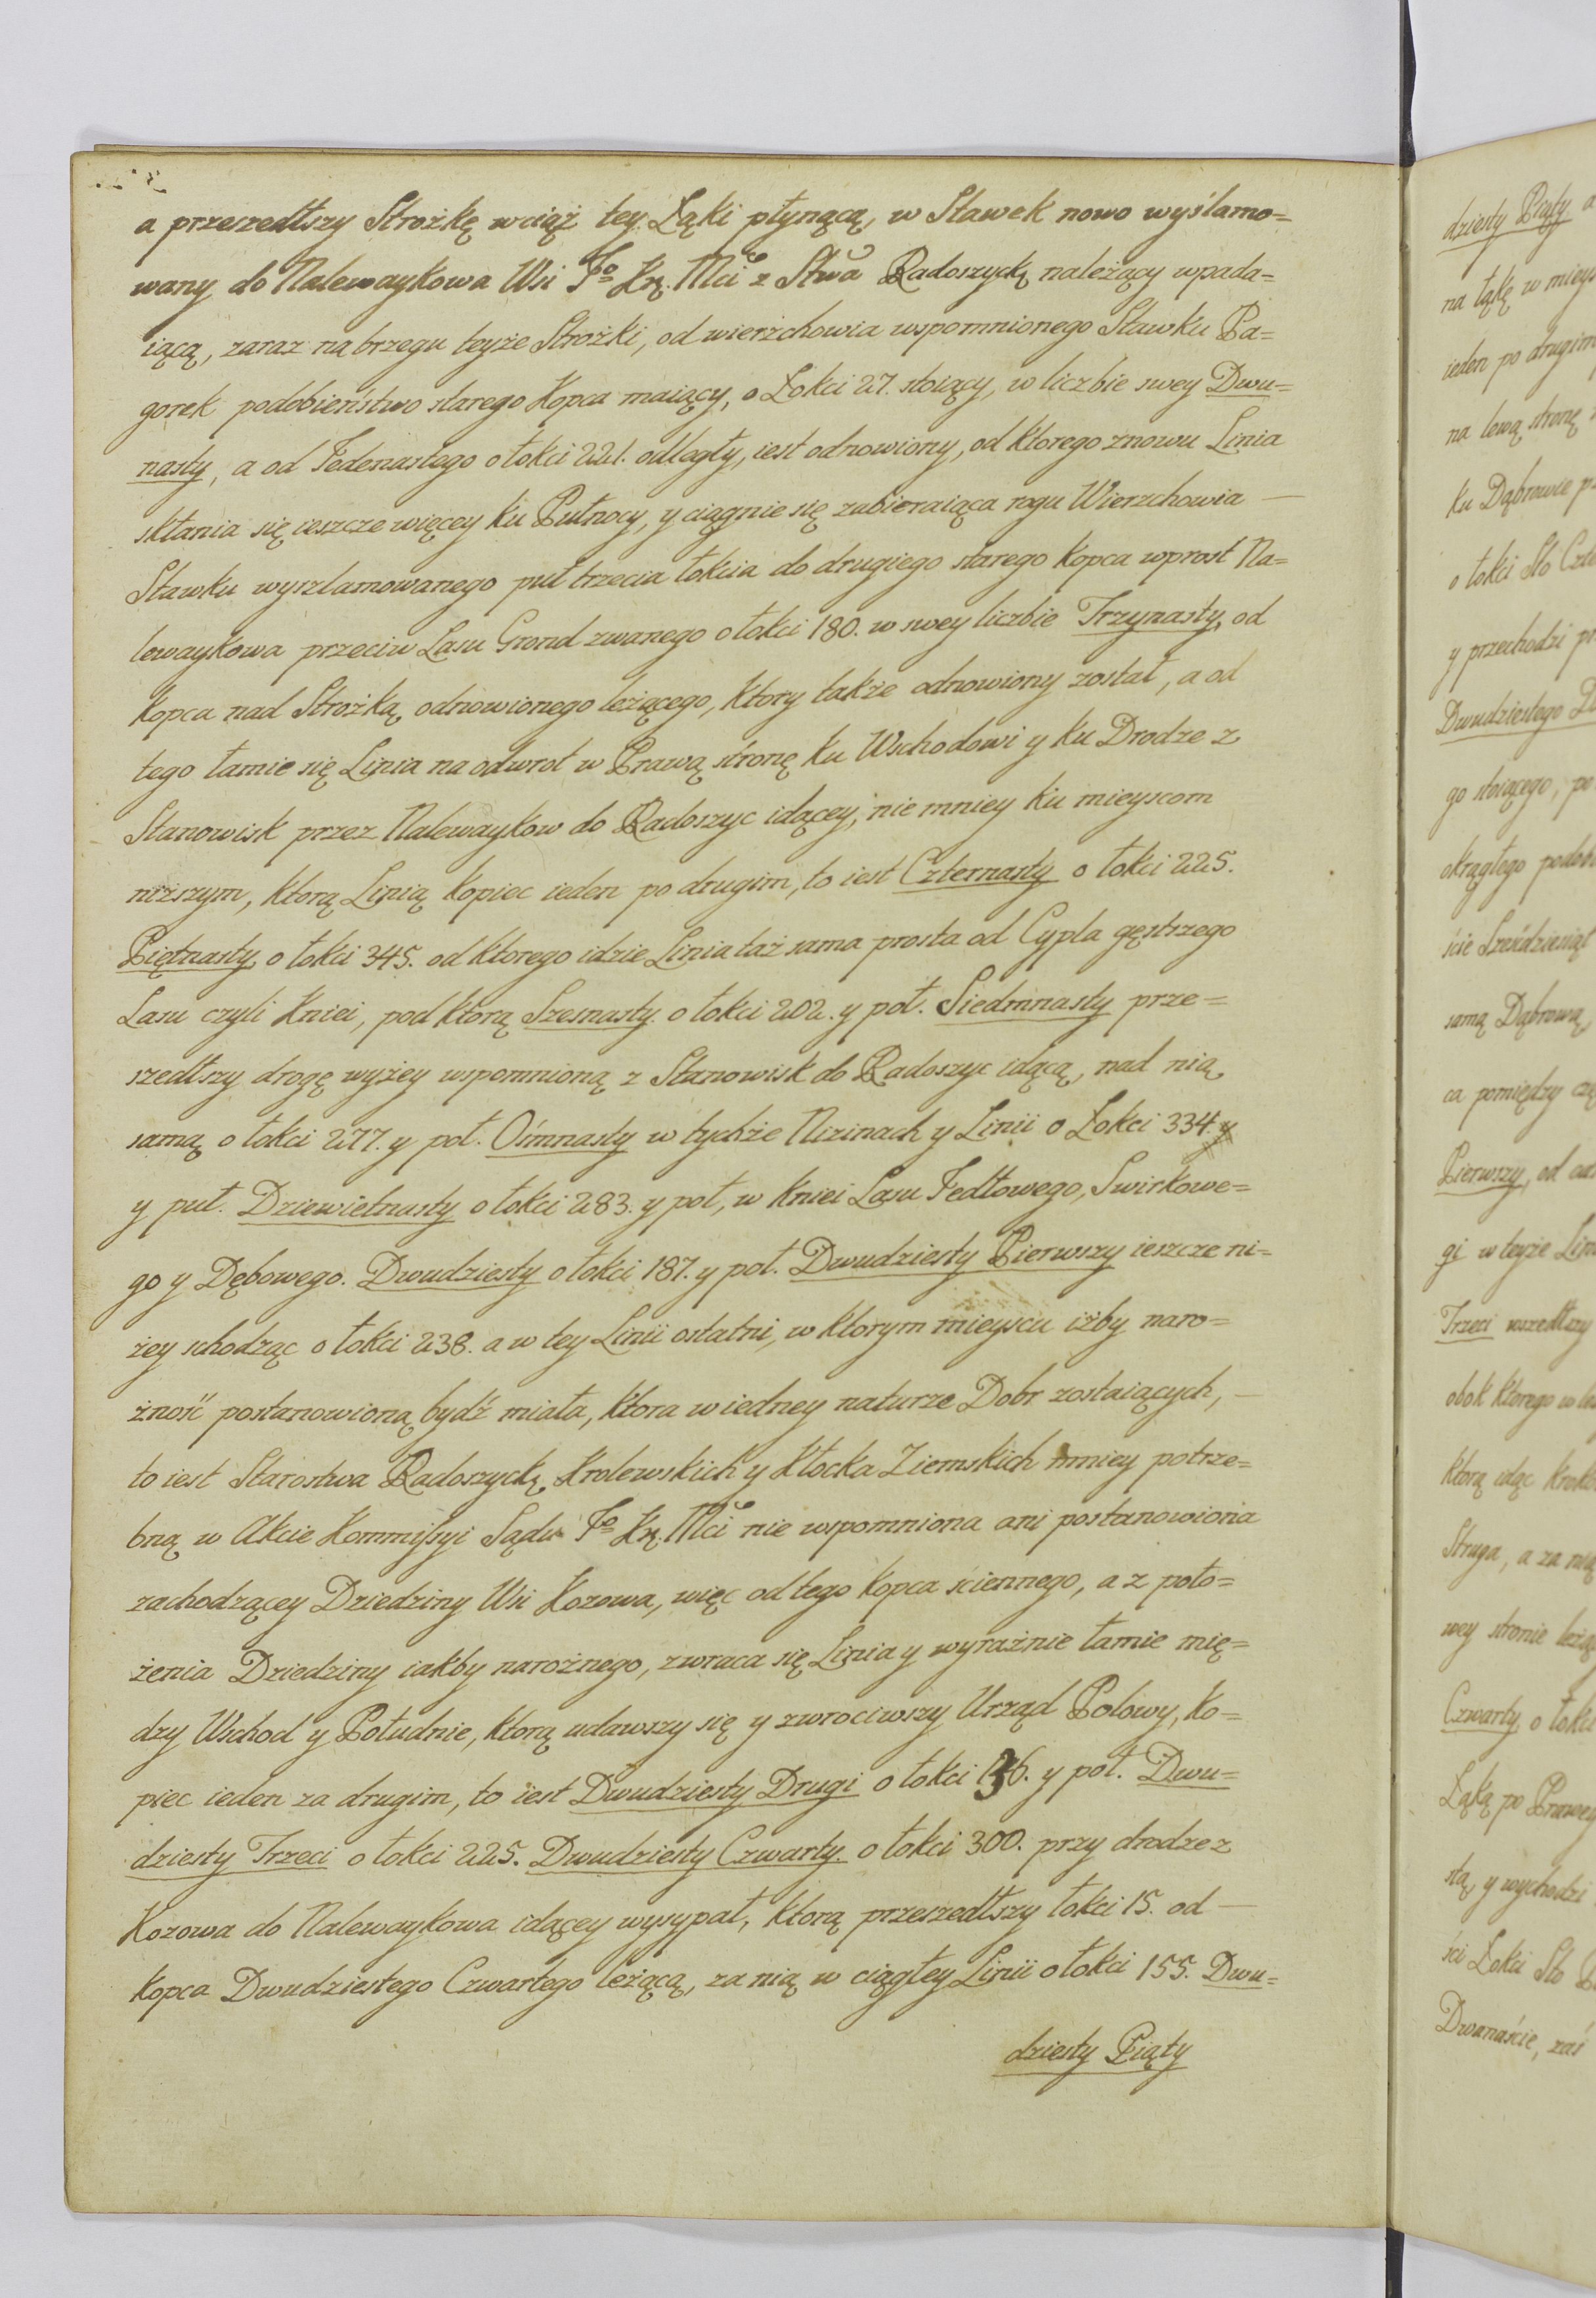 a przeszedłszy Strożkę wciąż tey Łąki płynącą, w Stawek nowo wyślamo=
wany do Nalewaykowa Wsi Jo Kr. Mci z Stwa Radoszyckę należący wpada=
iącą, zaraz na brzegu teyże Strożki, od wierżchowia wspomnionego Stawku Pa=
gorek podobieństwo starego Kopca maiący, o Łokci 27. stoiący, w liczbie swey Dwu=
nasty, a od Jedenastego o łokci 221. odległy, iest odnowiony, od ktorego znowu Linia
skłania się ieszcze więcey ku Pułnocy, y ciągnie się zabieraiąca rogu Wierzchowia —
Stawku wyszlamowanego puł trzecia łokcia do drugiego starego kopca wprost Na=
lewaykowa przeciw Lasu Grond zwanego o łokci 180. w swey liczbie Trzynasty, od
kopca nad Strożką odnowionego leżącego, ktory także odnowiony został, a od
tego łamie się Linia na odwrot w Prawą stronę ku Wschodowi y ku Drodze z
Stanowisk przez Nalewaykow do Radoszyc idącey, nie mniey ku mieyscom
niższym, ktorą Linią kopiec ieden po drugim, to iest Czternasty o łokci 225.
Piętnasty o łokci 345. od ktorego idzie Linia taż sama prosta od Cypla gęstrzego
Lasu czyli Kniei, pod ktorą Szesnasty o łokci 202. y poł. Siedmnasty prze=
szedłszy drogę wyżey wspomnioną z Stanowisk do Radoszyc idącą, nad nią
samą o łokci 277. y poł. Ośmnasty w tychże Nizinach y Linii o Łokci 334. y
y puł. Dziewietnasty o łokci 283. y poł, w Kniei Lasu Jedłowego, Swirkowe=
go y Dębowego. Dwudziesty o łokci 187. y poł. Dwudziesty Pierwszy ieszcze ni=
żey schodząc o łokci 238. a w tey Linii ostatni, w ktorym mieyscu iżby naro=
żność postanowioną bydź miała, ktora w iedney naturze Dobr zostaiących, —
to iest Starostwa Radoszyckę Krolewskich y Kłocka Ziemskich mniey potrze=
bną w Akcie Kommissyi Sądu Jo Kr. Mci nie wspomniona ani postanowiona
zachodzącey Dziedziny Wsi Kozowa, więc od tego kopca ściennego, a z poło=
żenia Dziedziny iakby narożnego, zwraca się Linia y wyraźnie łamie mię=
dzy Wschod y Południe, ktorą udawszy się y zwrociwszy Urząd Polowy, ko=
piec ieden za drugim, to iest Dwudziesty Drugi o łokci 136. y poł. Dwu=
dziesty Trzeci o łokci 225. Dwudziesty Czwarty o łokci 300. przy drodze z
Kozowa do Nalewaykowa idącey wysypał, ktorą przeszedłszy łokci 15. od —
kopca Dwudziestego Czwartego leżącą, za nią w ciągłey Linii o łokci 155. Dwu=
dziesty Piąty
dziesty Piąty a
na łąkę w mieys
ieden po drugim
na lewą stronę
ku Dąbrowie
o łokci Sto
y przechodzi
Dwudziestego
go stoiącego, po
okrągłego
ście Sześćdziesiąt
samą Dąbrową,
ca pomiędzy
Pierwszy, od
gi w teyże Lin
Trzeci wszedłszy
obok ktorego w
ktorą idąc
Struga, a za nią
wey stronie leżą
Czwarty o łokci
Łąką po Prawey
stą y wychodzi
ści Łokci Sto
Dwanaście, zaś